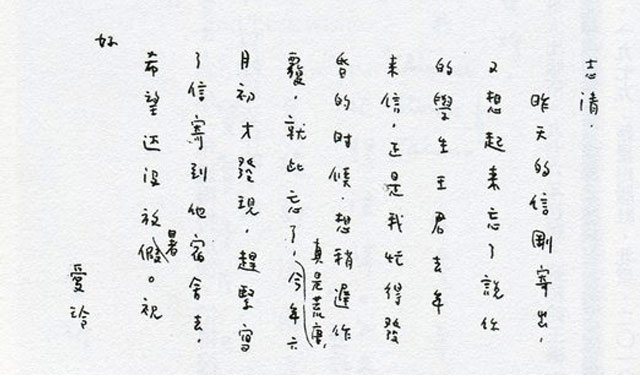 志清，
昨天的信剛寄出，
又想起来忘了說你
的學生王君去年
来信，正是我忙得發
昏的时候，想稍遲作
覆，就此忘了，真是荒唐，今年六
月初才發現，趕緊寫
了信寄到他宿舍去，
希望还沒放暑假。祝
好
愛玲